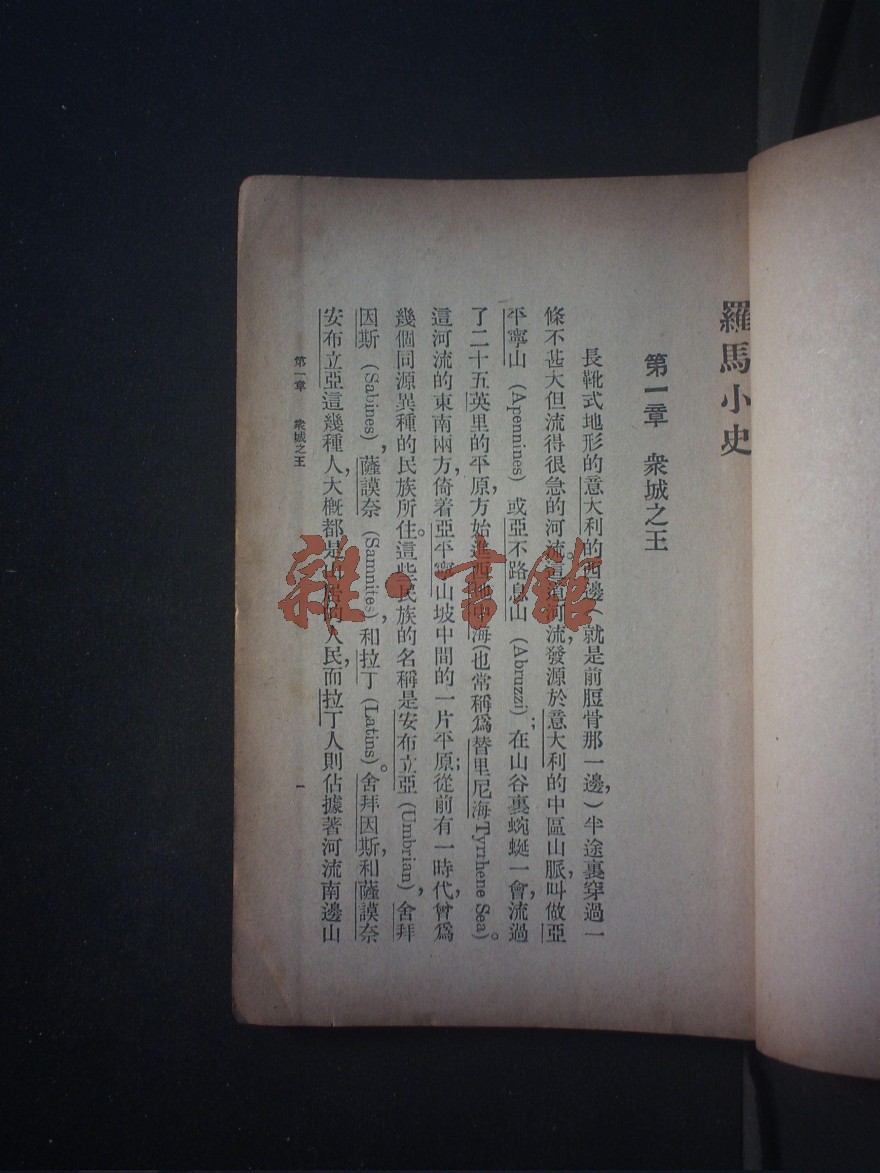 羅馬小史
第一章　衆城之王
長靴式地形的意大利的西邊(就是前脛骨那一邊,)半途裏穿過一
條不甚大但流得很急的河流。這道河流,發源於意大利的中區山脈,叫做亞
平寧山(Apennines)或亞不路息山(Abruzzi);在山谷裏蜿蜒一會,流過
了二十五英里的平原,方始進西地中海(也常稱爲替里尼海Tyrrhene Sea)。
這河流的東南兩方,倚着亞平寧山坡中間的一片平原;從前有一時代,曾爲
幾個同源異種的民族所住。這些民族的名稱是安布立亞(Umbrian),舍拜
因斯(Sabines),薩謨奈(Samnites),和拉丁(Latins)。舍拜因斯,和薩謨奈
安布立亞這幾種人,大概都是山居的人民,而拉丁人則佔據著河流南邊山
第一章　衆城之王
一
雜·書館